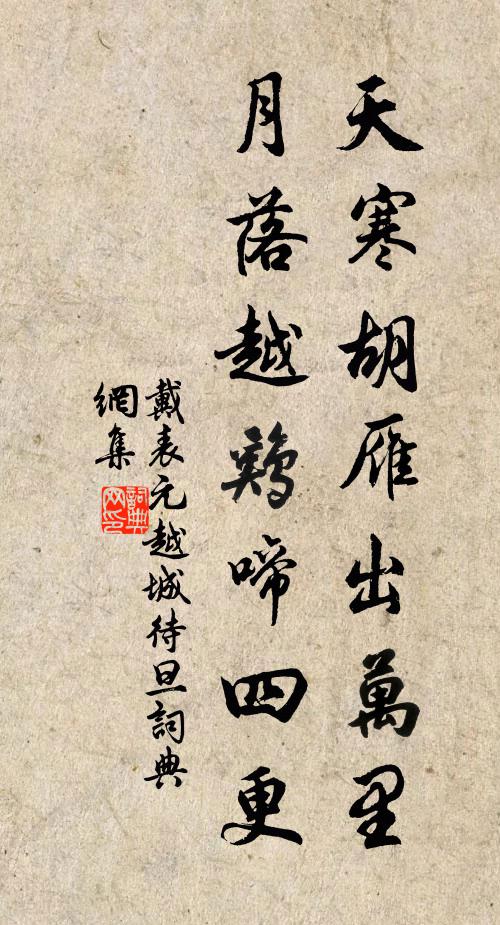 天寒胡雁出萬里
月落越鷄啼四更
戴表元越城待旦詞典
網集
詞典网印